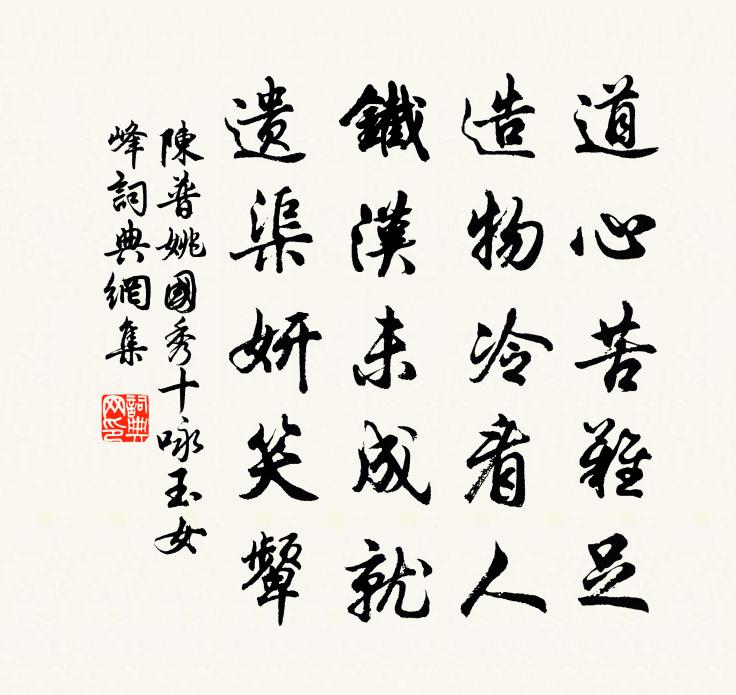 道心苦難足
造物冷看人
鐵漢未成就
遺渠妍笑顰
陳普姚國秀十咏玉女
峰詞典網集
詞典
网印